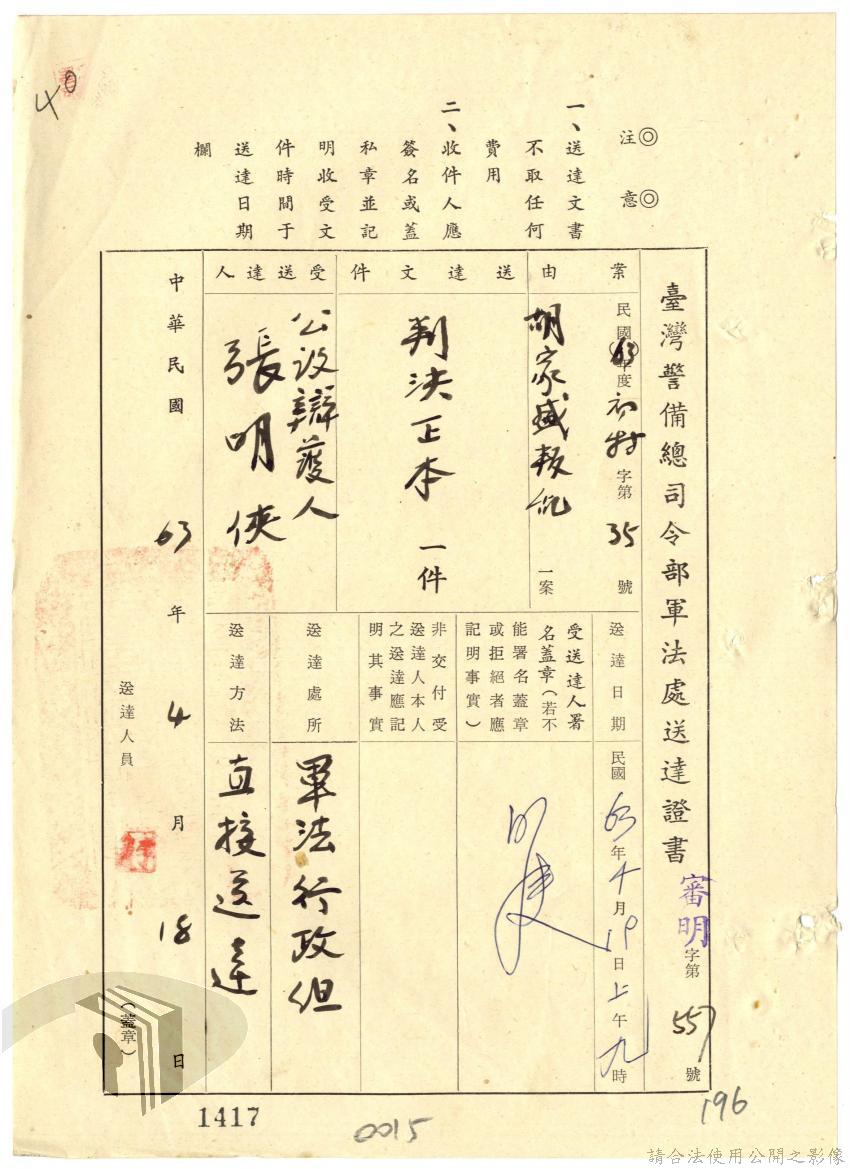 40
◎注意◎
一、送達文書
不取任何
費用
二、收件人應
簽名或蓋
私章並記
明收受文
件時間于
送達日期
欄
臺灣警備總司令部軍法處送達證書
審明字第557號
案由
民國(63)年度初特字第35號
胡家盛叛亂一案
送達文件
判決正本一件
受送達人
公設辯護人
張明俠
送達日期
民國63年4月19日上午九時
受送達人署
名蓋章(若不
能署名蓋章
或拒絕者應
記明事實)
非交付受
送達人本人
之送達應記
明其事實
送達處所
軍法行政組
送達方法
直接送達
中華民國63年4月18日
送達人員
(蓋章)
1417
0015
196
請合法使用公開之影像